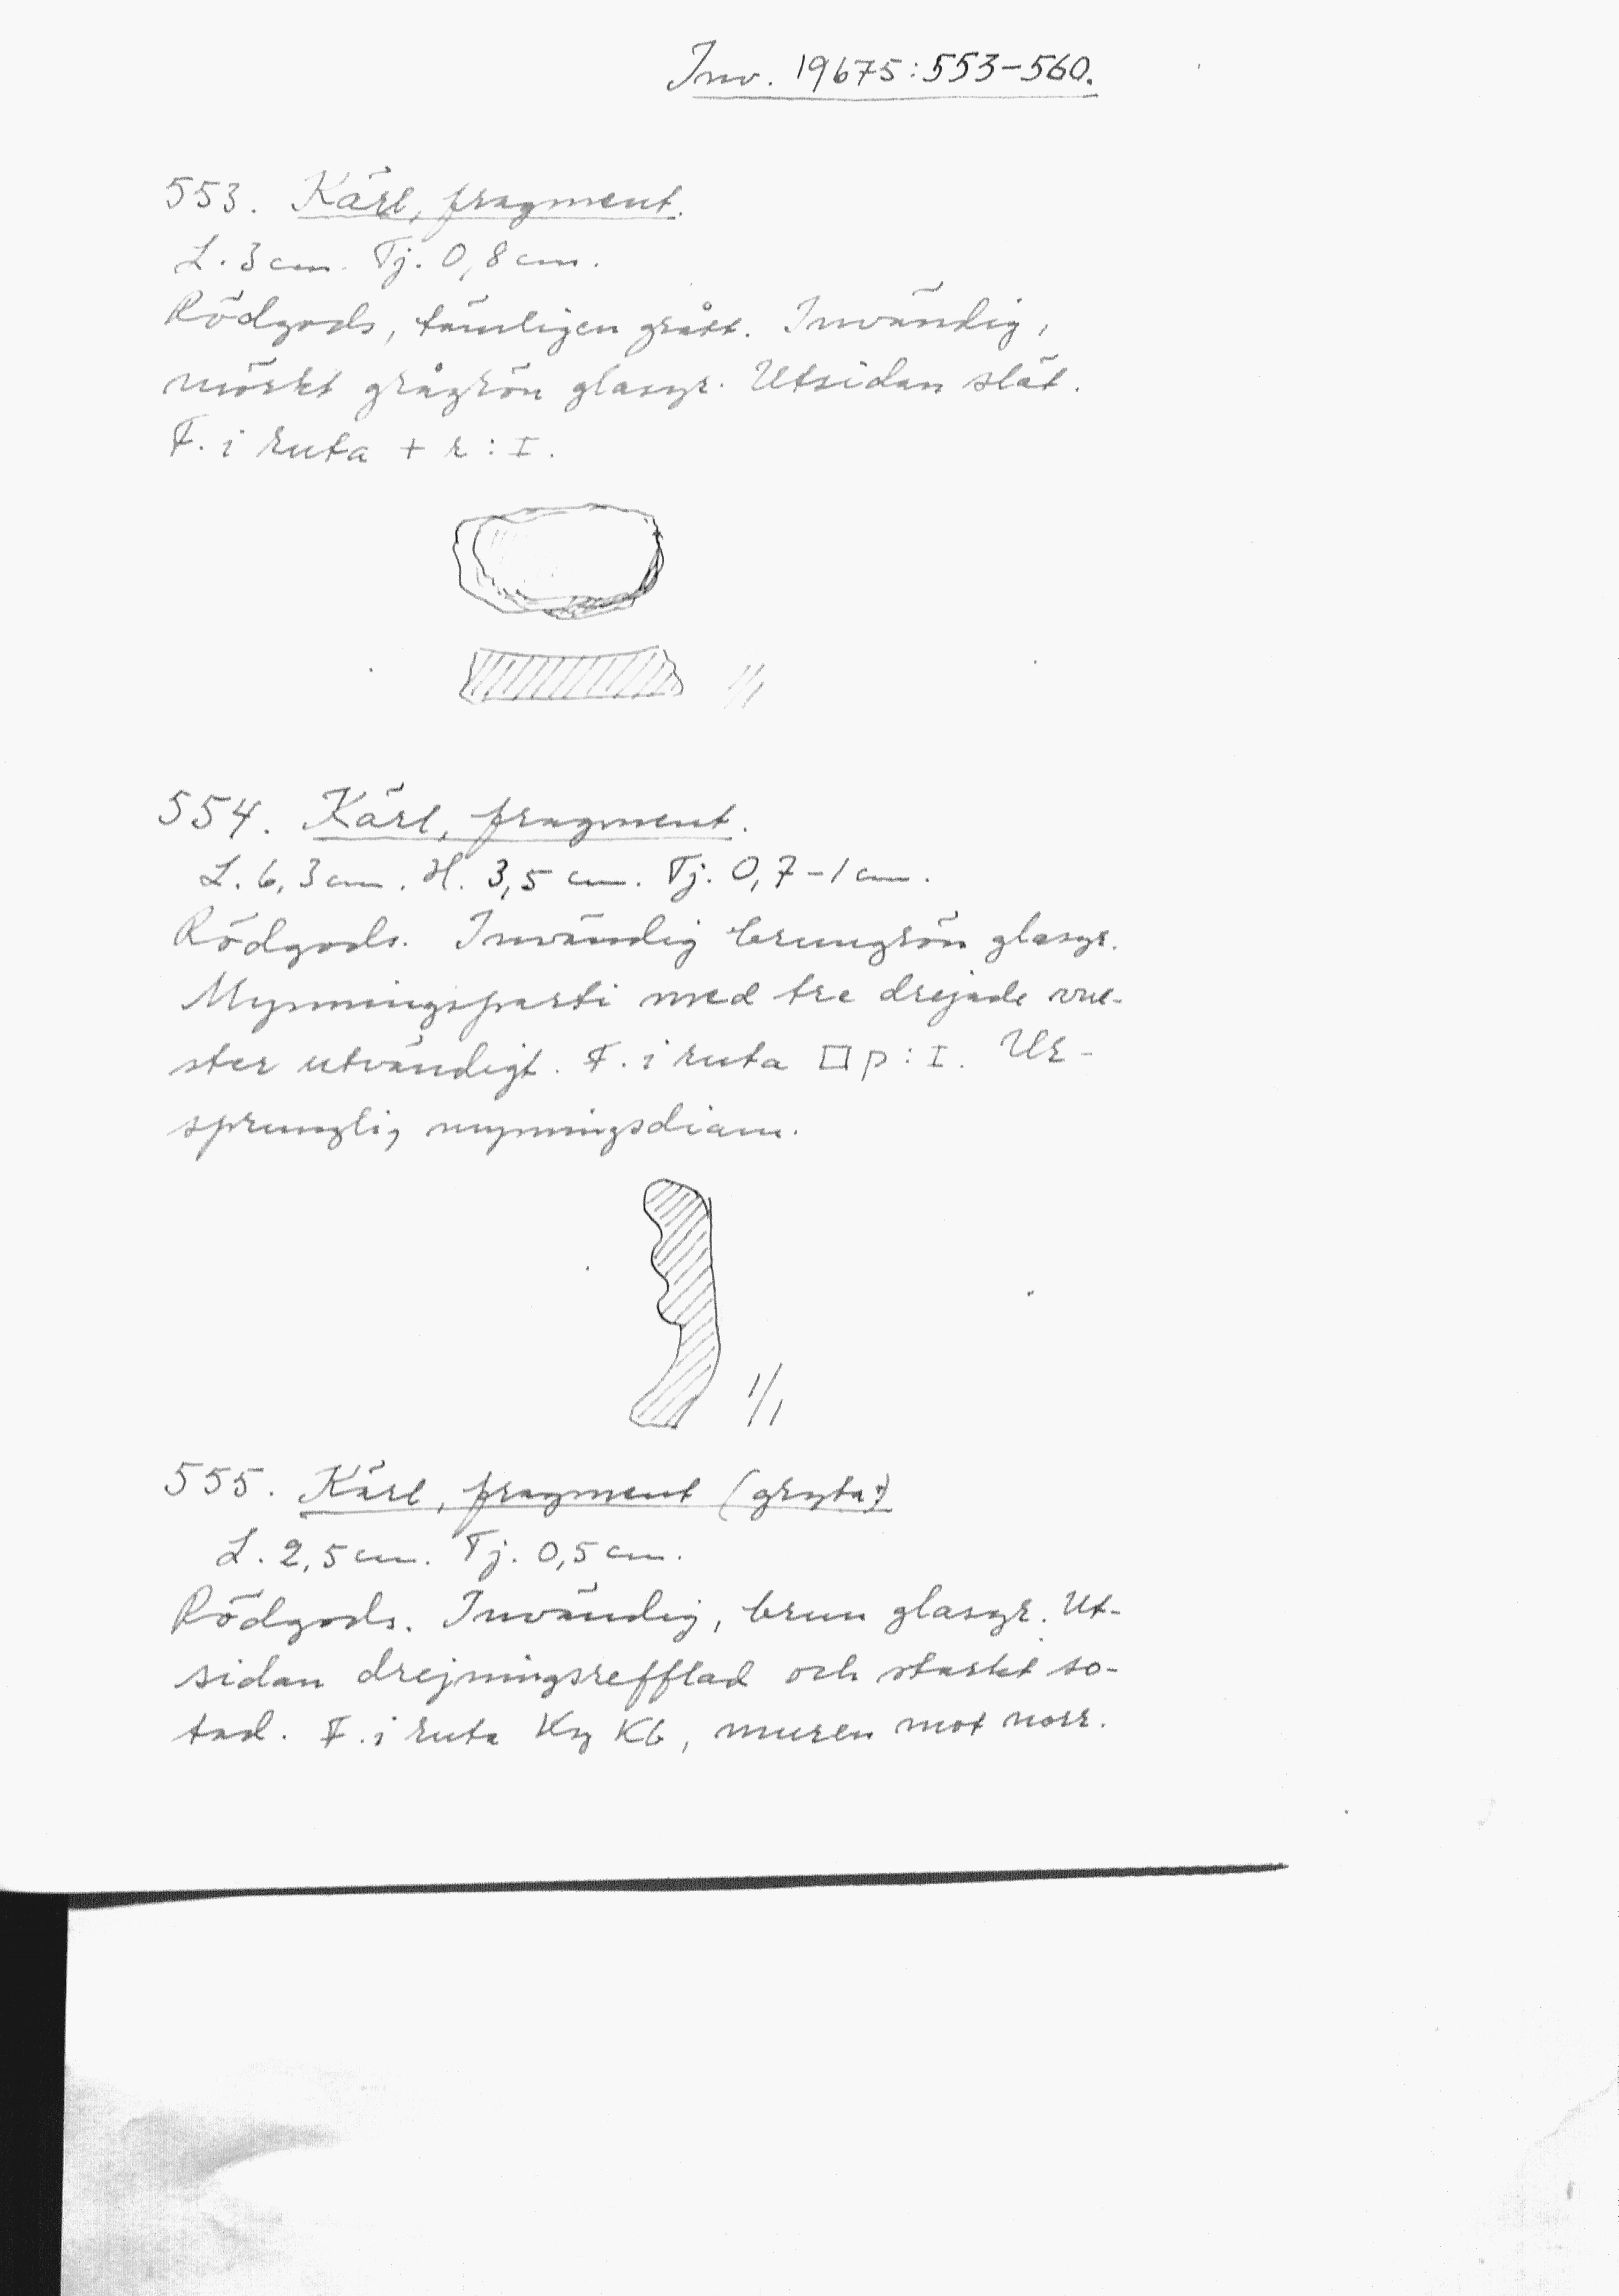 Inv. 19675:553-560.
553. Kärl, fragment.
L. 3 cm. Tj. 0,8 cm.
Rödgods, tämligen grått. Invändig,
mörkt grågrön glasyr. Utsidan slät.
F. i ruta + r : I.
1/1
554. Kärl, fragment.
L. 6,3 cm. H. 3,5 cm. Tj. 0,7-1 cm.
Rödgods. Invändig brungrön glasyr.
Mynningsparti med tre drejade vul-
ster utvändigt. F. i ruta □ p : I. Ur-
sprunglig mynningsdiam.
1/1
555. Kärl, fragment (gryta?)
L. 2,5 cm. Tj. 0,5 cm.
Rödgods. Invändig, brun glasyr. Ut-
sidan drejningsrefflad och starkt so-
tad. F. i ruta K6, muren mot norr.